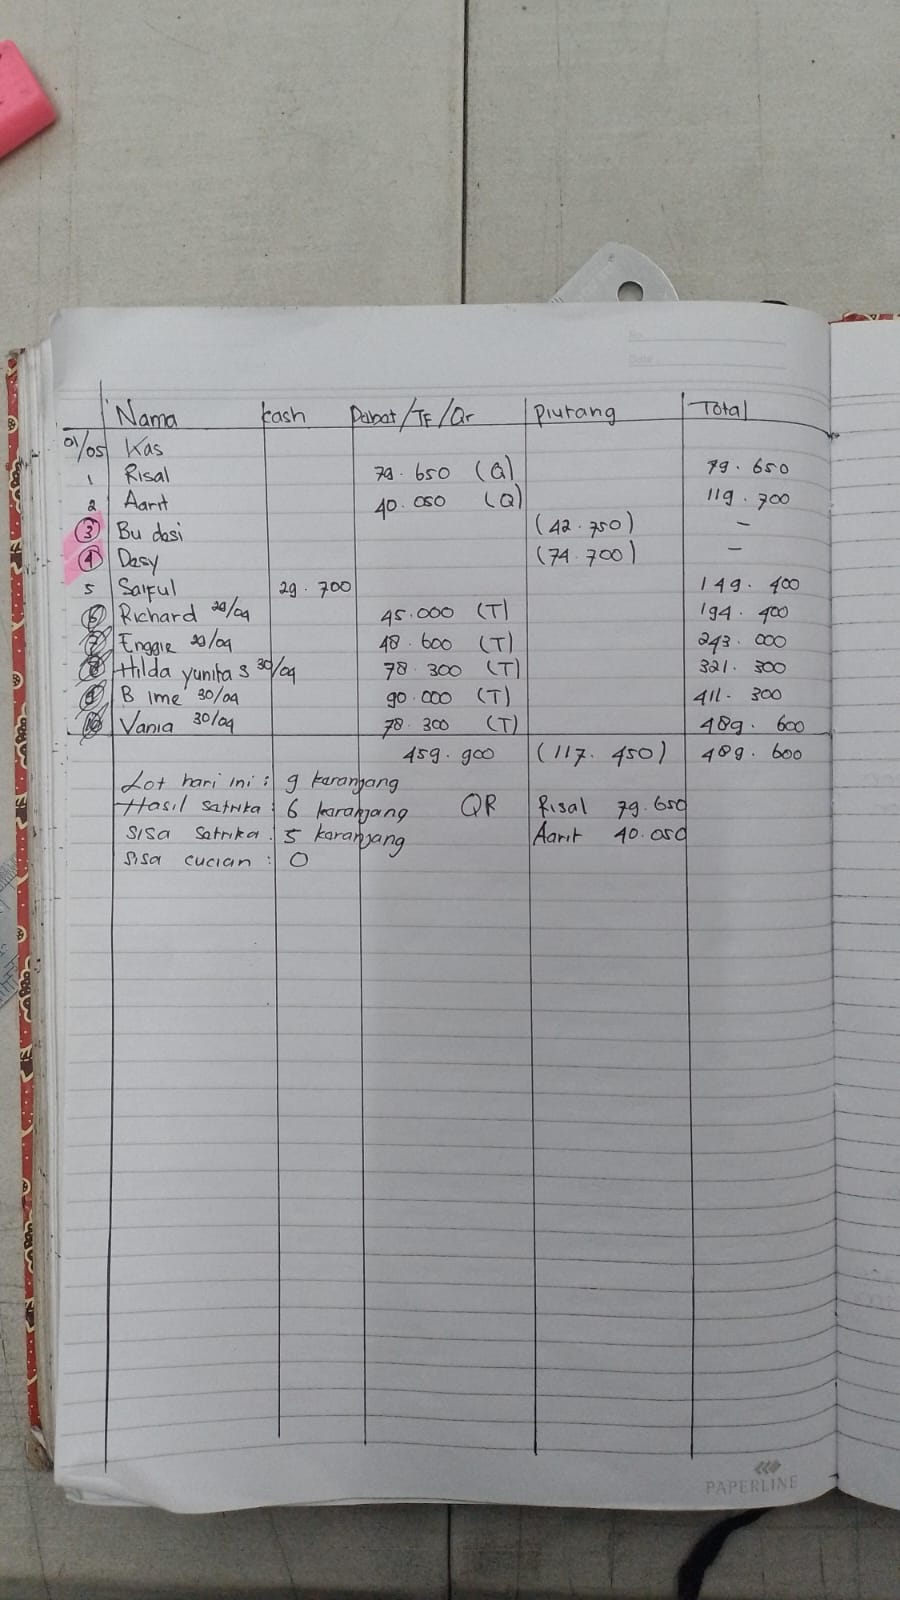 No.
Date
Nama cash Debet/TF/Qr Piutang Total
01/05 Kas
1 Risal 79.650 (Q) 79.650
2 Aarit 40.050 (Q) 119.700
3 Bu desi (42.750) -
4 Desy (74.700) -
5 Saiful 29.700 149.400
6 Richard 29/04 45.000 (T) 194.400
7 Enggie 29/04 48.600 (T) 243.000
8 Hilda yunita S 30/04 78.300 (T) 321.300
9 B Ime 30/04 90.000 (T) 411.300
10 Vania 30/04 78.300 (T) 489.600
459.900 (117.450) 489.600
Lot hari ini : 9 keranjang
Hasil setrika : 6 keranjang QR Risal 79.650
Sisa setrika : 5 keranjang Aarit 40.050
Sisa cucian : 0
PAPERLINE